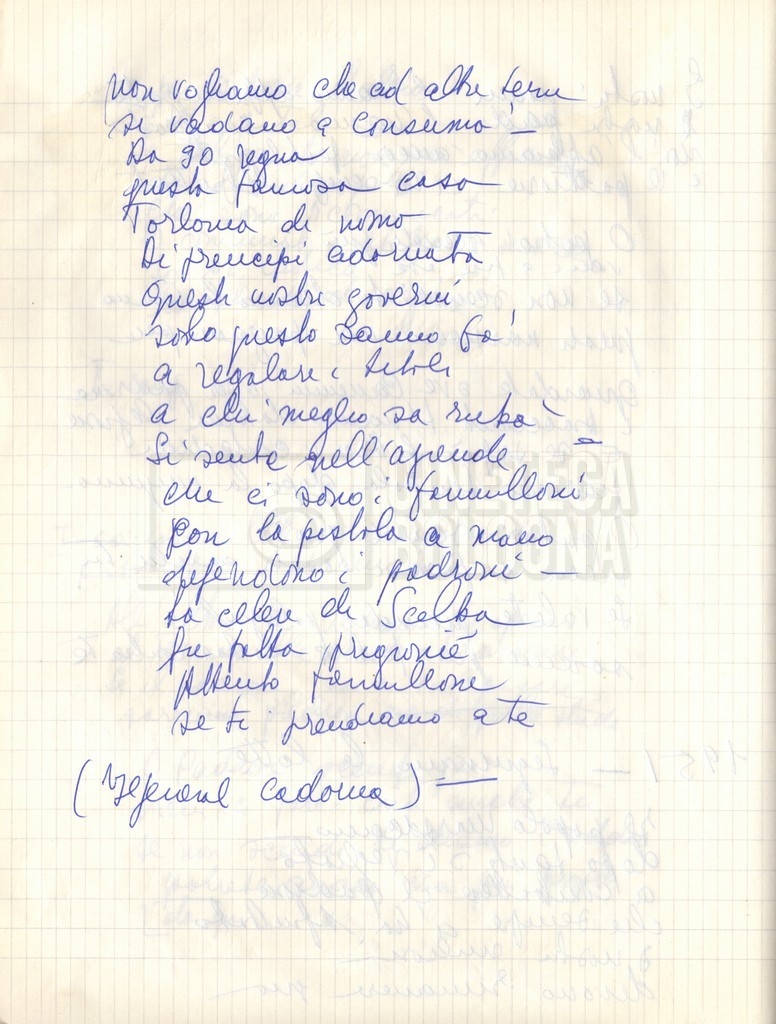 non vogliamo che ad altre terre
si vadano a consumà —
Da 90 regna
questa famosa casa
Torlonia di nomo
Di principi adornata
Questi nostri governi
solo questo sanno fà
a regalare i titoli
a chi meglio sa rubà —
Si sente nell'aziende
che ci sono i fanulloni
con la pistola a mano
difendono i padroni —
La celere di Scelba
fu fatta prigionié
Attento fanullone
se ti prendiamo a te
(Il general Cadorna) —
CINETECA
BOLOGNA